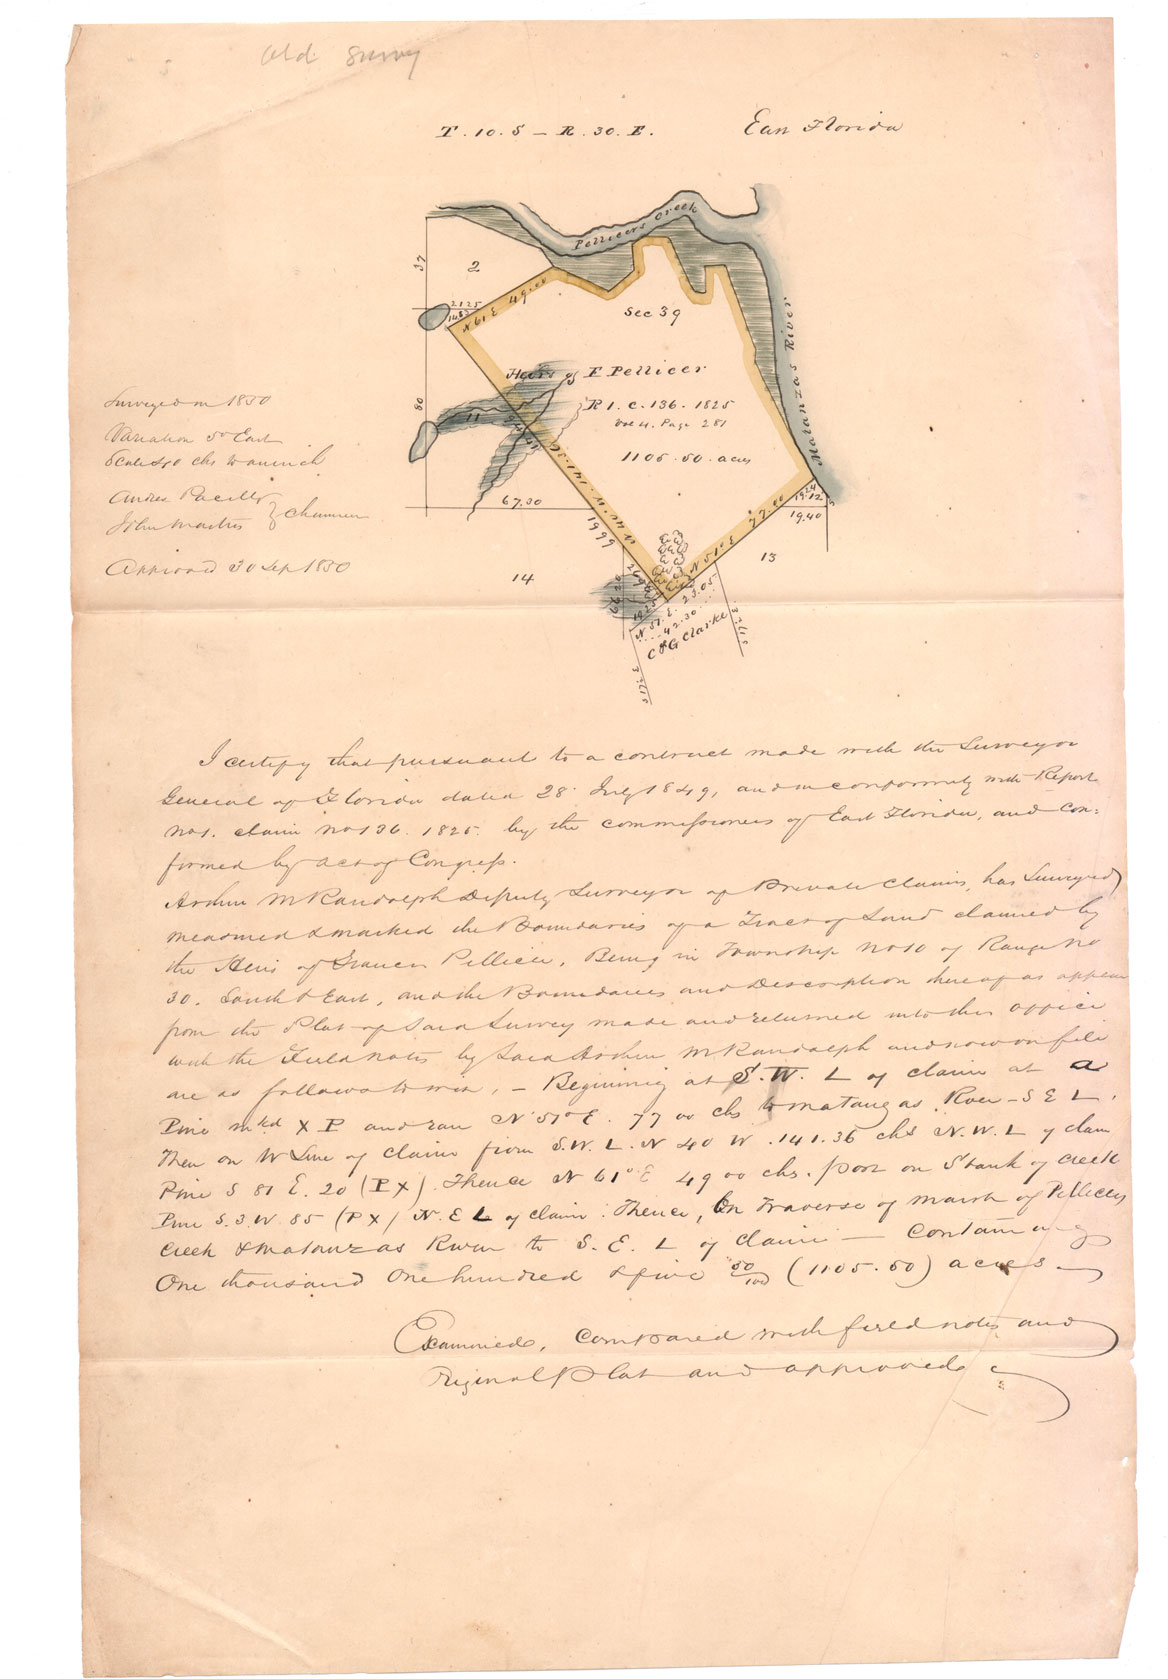 Old Survey
T. 10. S - R. 30. E. East Florida
Pellicers Creek
37
2
21.25
14.82
N 61 E 49.00
Sec 39
Matanzas River
Heirs of F Pellicer
R 1. C. 136. 1825
Vol 4. Page 281
1105.50. acres
80
11
N 40 W. 141.36
67.30
19.99
N 51° E 77.00
19.24
19.12
19.40
13
14
66.20
N 51. E. 23.05
42.30
C & G Clarke
S 17 E
S 17 E
Surveyed in 1850
Variation 5° East
Scale 40 chs to an inch
Andres Pacetty
John Masters } chainmen
Approved 30 Sep 1850
I certify that pursuant to a contract made with the Surveyor
General of Florida dated 28 July 1849, and in conformity with Report
No 1. claim no 136. 1825. by the commissioners of East Florida, and con=
formed by act of Congress.
Arthur M Randolph Deputy Surveyor of Private Claims, has Surveyed
measured & marked the Boundaries of a Tract of Land claimed by
the Heirs of Francis Pellicer, Being in Township No 10 of Range No
30. South & East, and the Boundaries and Description thereof as appear
from the Plat of Said Survey made and returned into this office
with the Field notes by Said Arthur M Randolph and now on file
are as follows to wit, - Beginning at S. W. L of claim at a
Pine mkd X P and ran N 51° E. 77 00 chs to Matanzas River - S E L.
Then on W Line of claim from S. W. L. N 40 W. 141.36 chs N. W. L of claim
Pine S 81 E. 20 (P X) Thence N 61° E 49 00 chs. post on S bank of creek
Pine S. 3. W. 85 (P X) N. E L of claim. Thence, On Traverse of marsh of Pellicers
Creek & Matanzas River to S. E. L of claim — Containing
One thousand One hundred & five 50/100 (1105.50) acres —
Examined, compared with field notes and
riginal Plat and approved